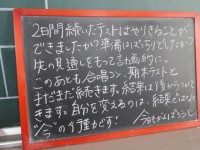 2日間続いたテストはやりきることが
できましたか?準備はばっちりでしたか?
先の見通しをもって計画的に。
このあとも合唱コン、期末テストと
まだまだ続きます。結果は後からついて
きます。自分を変えるのは、結果ではなく
"今"の行動です!
今日もがんばろう